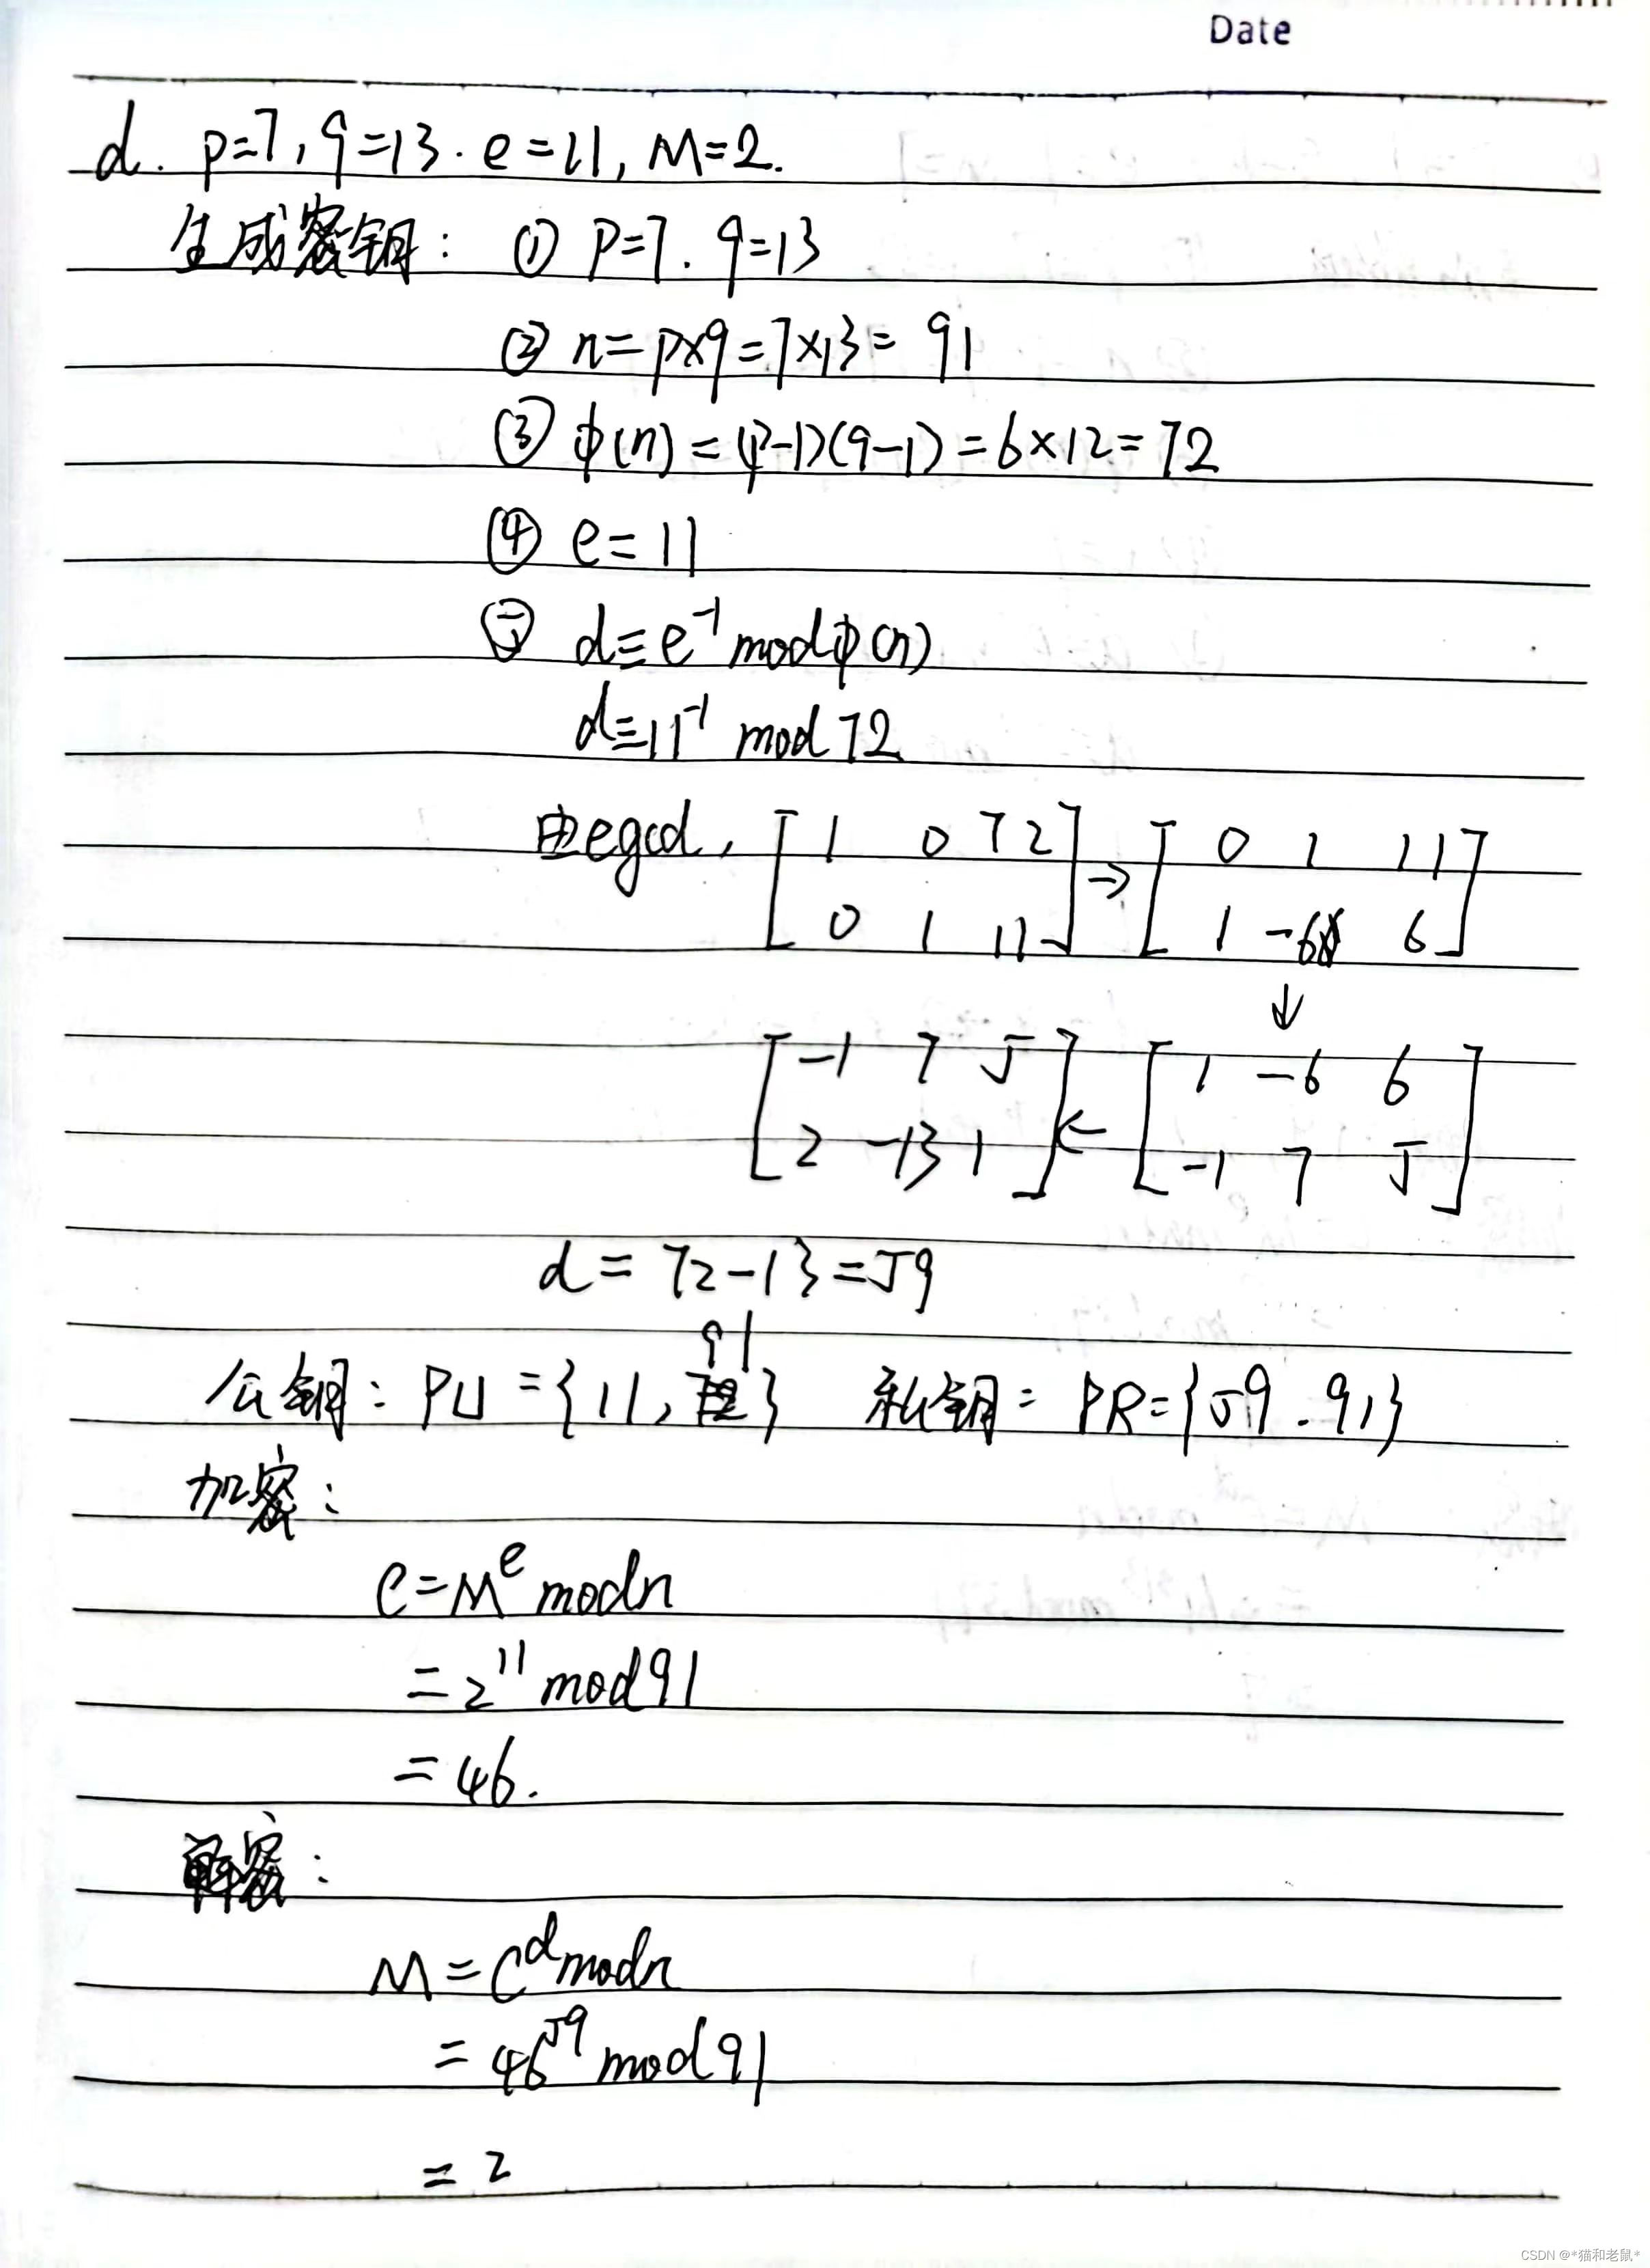 Date
d. p=7, q=13. e=11, M=2.
生成密钥: ① p=7. q=13
② n=p×q=7×13=91
③ φ(n)=(p-1)(q-1)=6×12=72
④ e=11
⑤ d≡e⁻¹ mod φ(n)
d≡11⁻¹ mod 72
由egcd, [ 1 0 72 ] → [ 0 1 11 ]
[ 0 1 11 ] [ 1 -6 6 ]
↓
[ -1 7 5 ] ← [ 1 -6 6 ]
[ 2 -13 1 ] [ -1 7 5 ]
d = 72-13=59
公钥: PU={11, 91} 私钥: PR={59. 91}
加密:
C=Mᵉ mod n
=2¹¹ mod 91
=46.
解密:
M=Cᵈ mod n
=46⁵⁹ mod 91
=2
CSDN @*猫和老鼠*